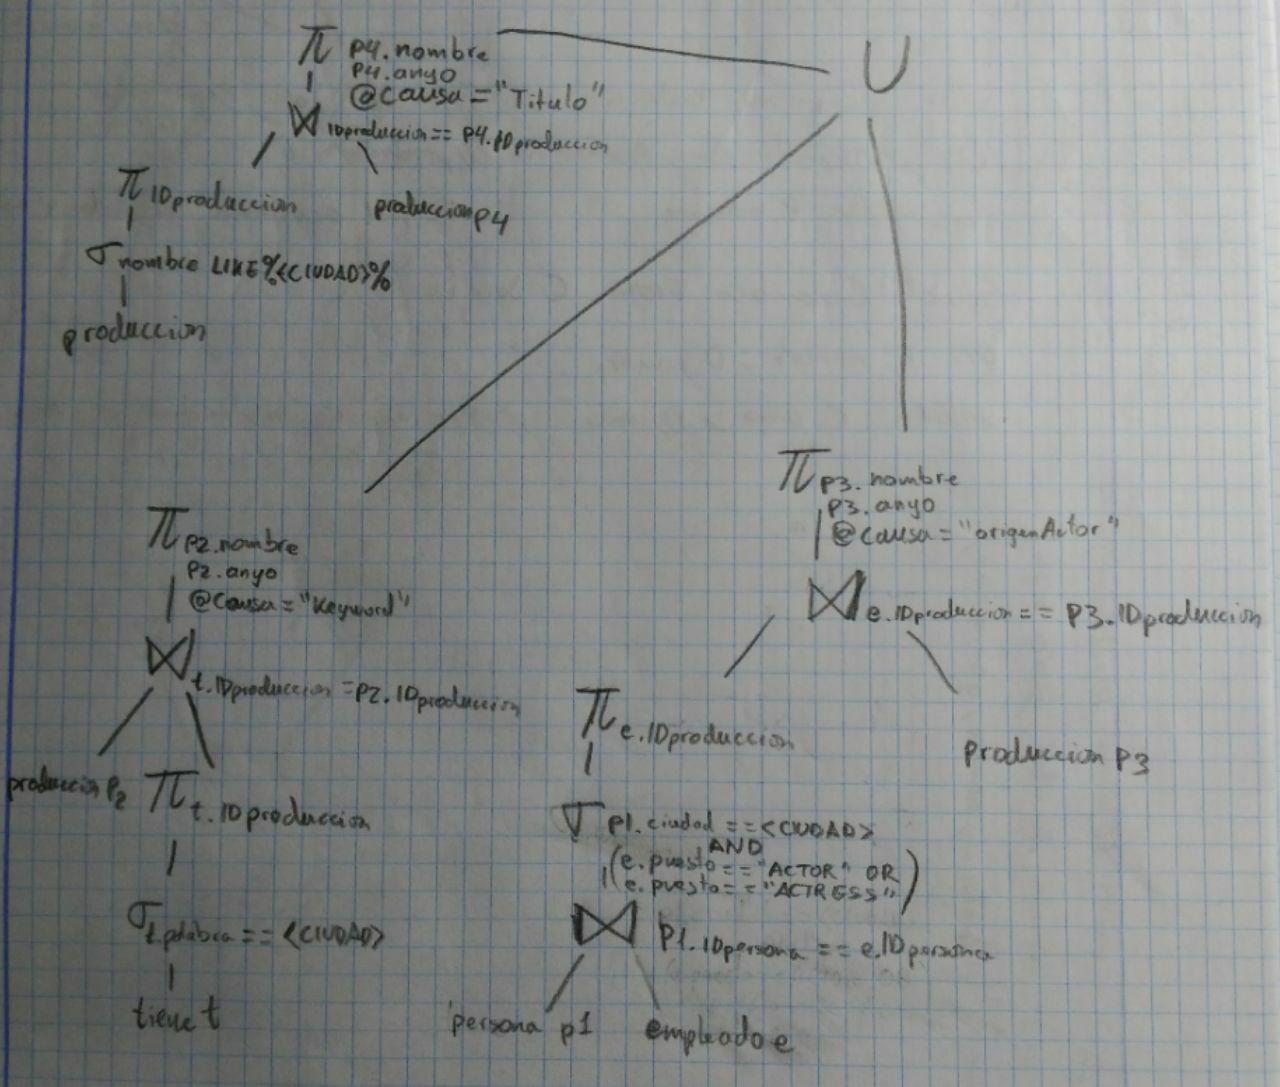 π p4.nombre
p4.anyo
@causa="Titulo"
⋈ IDproduccion== p4.IDproduccion
π IDproduccion
produccion p4
σ nombre LIKE%<CIUDAD>%
produccion
U
π p2.nombre
p2.anyo
@causa="Keyword"
⋈ t.IDproduccion =p2.IDproduccion
produccion p2
π t.IDproduccion
σ t.palabra == <CIUDAD>
tiene t
π p3.nombre
p3.anyo
@causa="origenActor"
⋈ e.IDproduccion == p3.IDproduccion
π e.IDproduccion
produccion p3
σ p1.ciudad ==<CIUDAD>
AND
(e.puesto=="ACTOR" OR
e.puesto=="ACTRESS")
⋈ p1.IDpersona == e.IDpersona
persona p1
empleado e